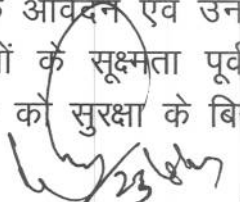 आवेदन एवं उन
के सूक्ष्मता पूर्व
को सुरक्षा के बि
23